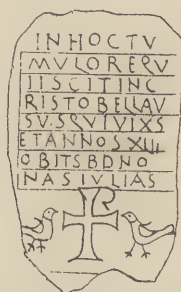 INHOCTV
MVLOREQV
IISCITINC
RISTOBELLAV
SVSQVIVIXS
ETANNOSXIII
OBIITSBDNO
NASIVLIAS